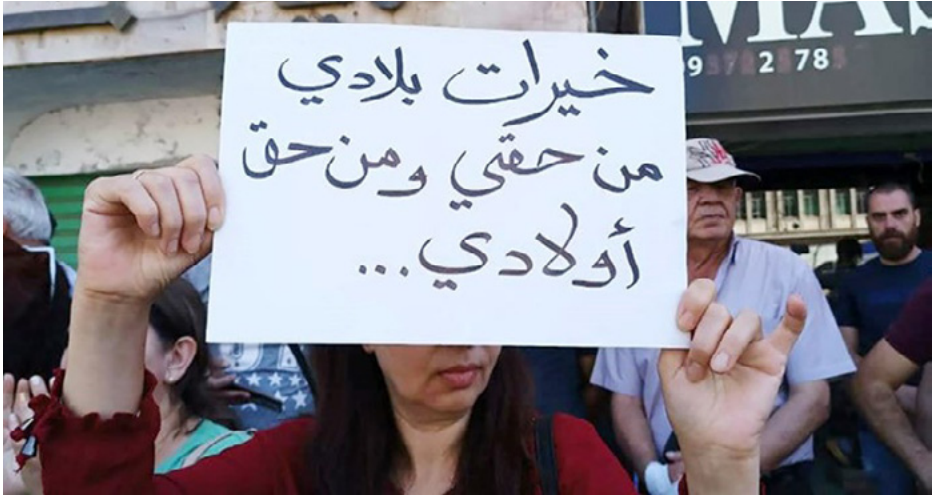 خيرات بلادي
من حقي ومن حق
أولادي...
MAS